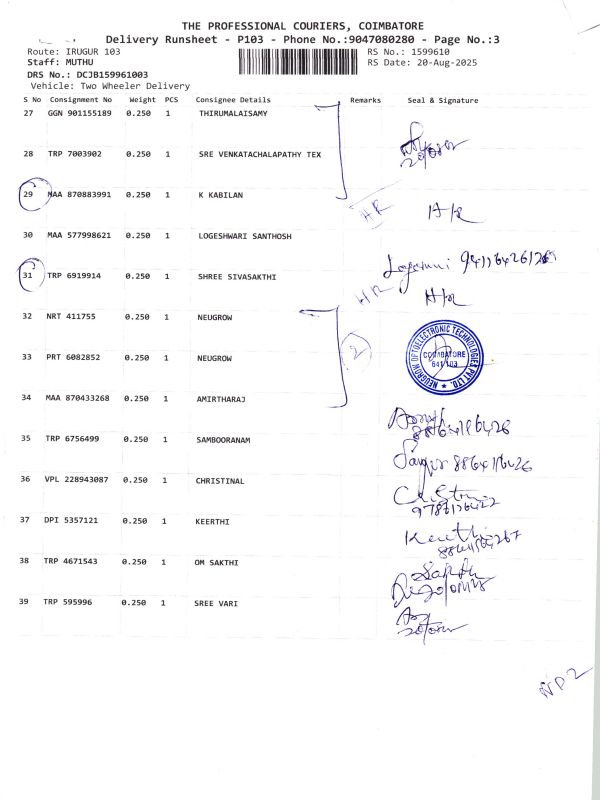 THE PROFESSIONAL COURIERS, COIMBATORE
Delivery Runsheet - P103 - Phone No.:9047080280 - Page No.:3
Route: IRUGUR 103
RS No.: 1599610
Staff: MUTHU
RS Date: 20-Aug-2025
DRS No.: DCJB159961003
Vehicle: Two Wheeler Delivery
S No Consignment No Weight PCS Consignee Details Remarks Seal & Signature
27 GGN 901155189 0.250 1 THIRUMALAISAMY
28 TRP 7003902 0.250 1 SRE VENKATACHALAPATHY TEX
29 MAA 870883991 0.250 1 K KABILAN
HR
H/R
30 MAA 577998621 0.250 1 LOGESHWARI SANTHOSH
31 TRP 6919914 0.250 1 SHREE SIVASAKTHI
HR
H/R
32 NRT 411755 0.250 1 NEUGROW
NEUGROW OPTOELECTRONIC TECHNOLOGIES PVT LTD.
COIMBATORE
641 103
33 PRT 6082852 0.250 1 NEUGROW
2
34 MAA 870433268 0.250 1 AMIRTHARAJ
35 TRP 6756499 0.250 1 SAMBOORANAM
36 VPL 228943087 0.250 1 CHRISTINAL
37 DPI 5357121 0.250 1 KEERTHI
Keerthi
38 TRP 4671543 0.250 1 OM SAKTHI
39 TRP 595996 0.250 1 SREE VARI
ND2